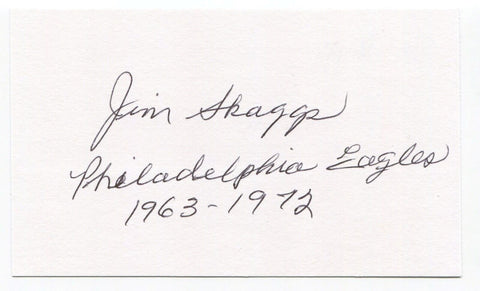 Jim Skaggs
Philadelphia Eagles
1963-1972